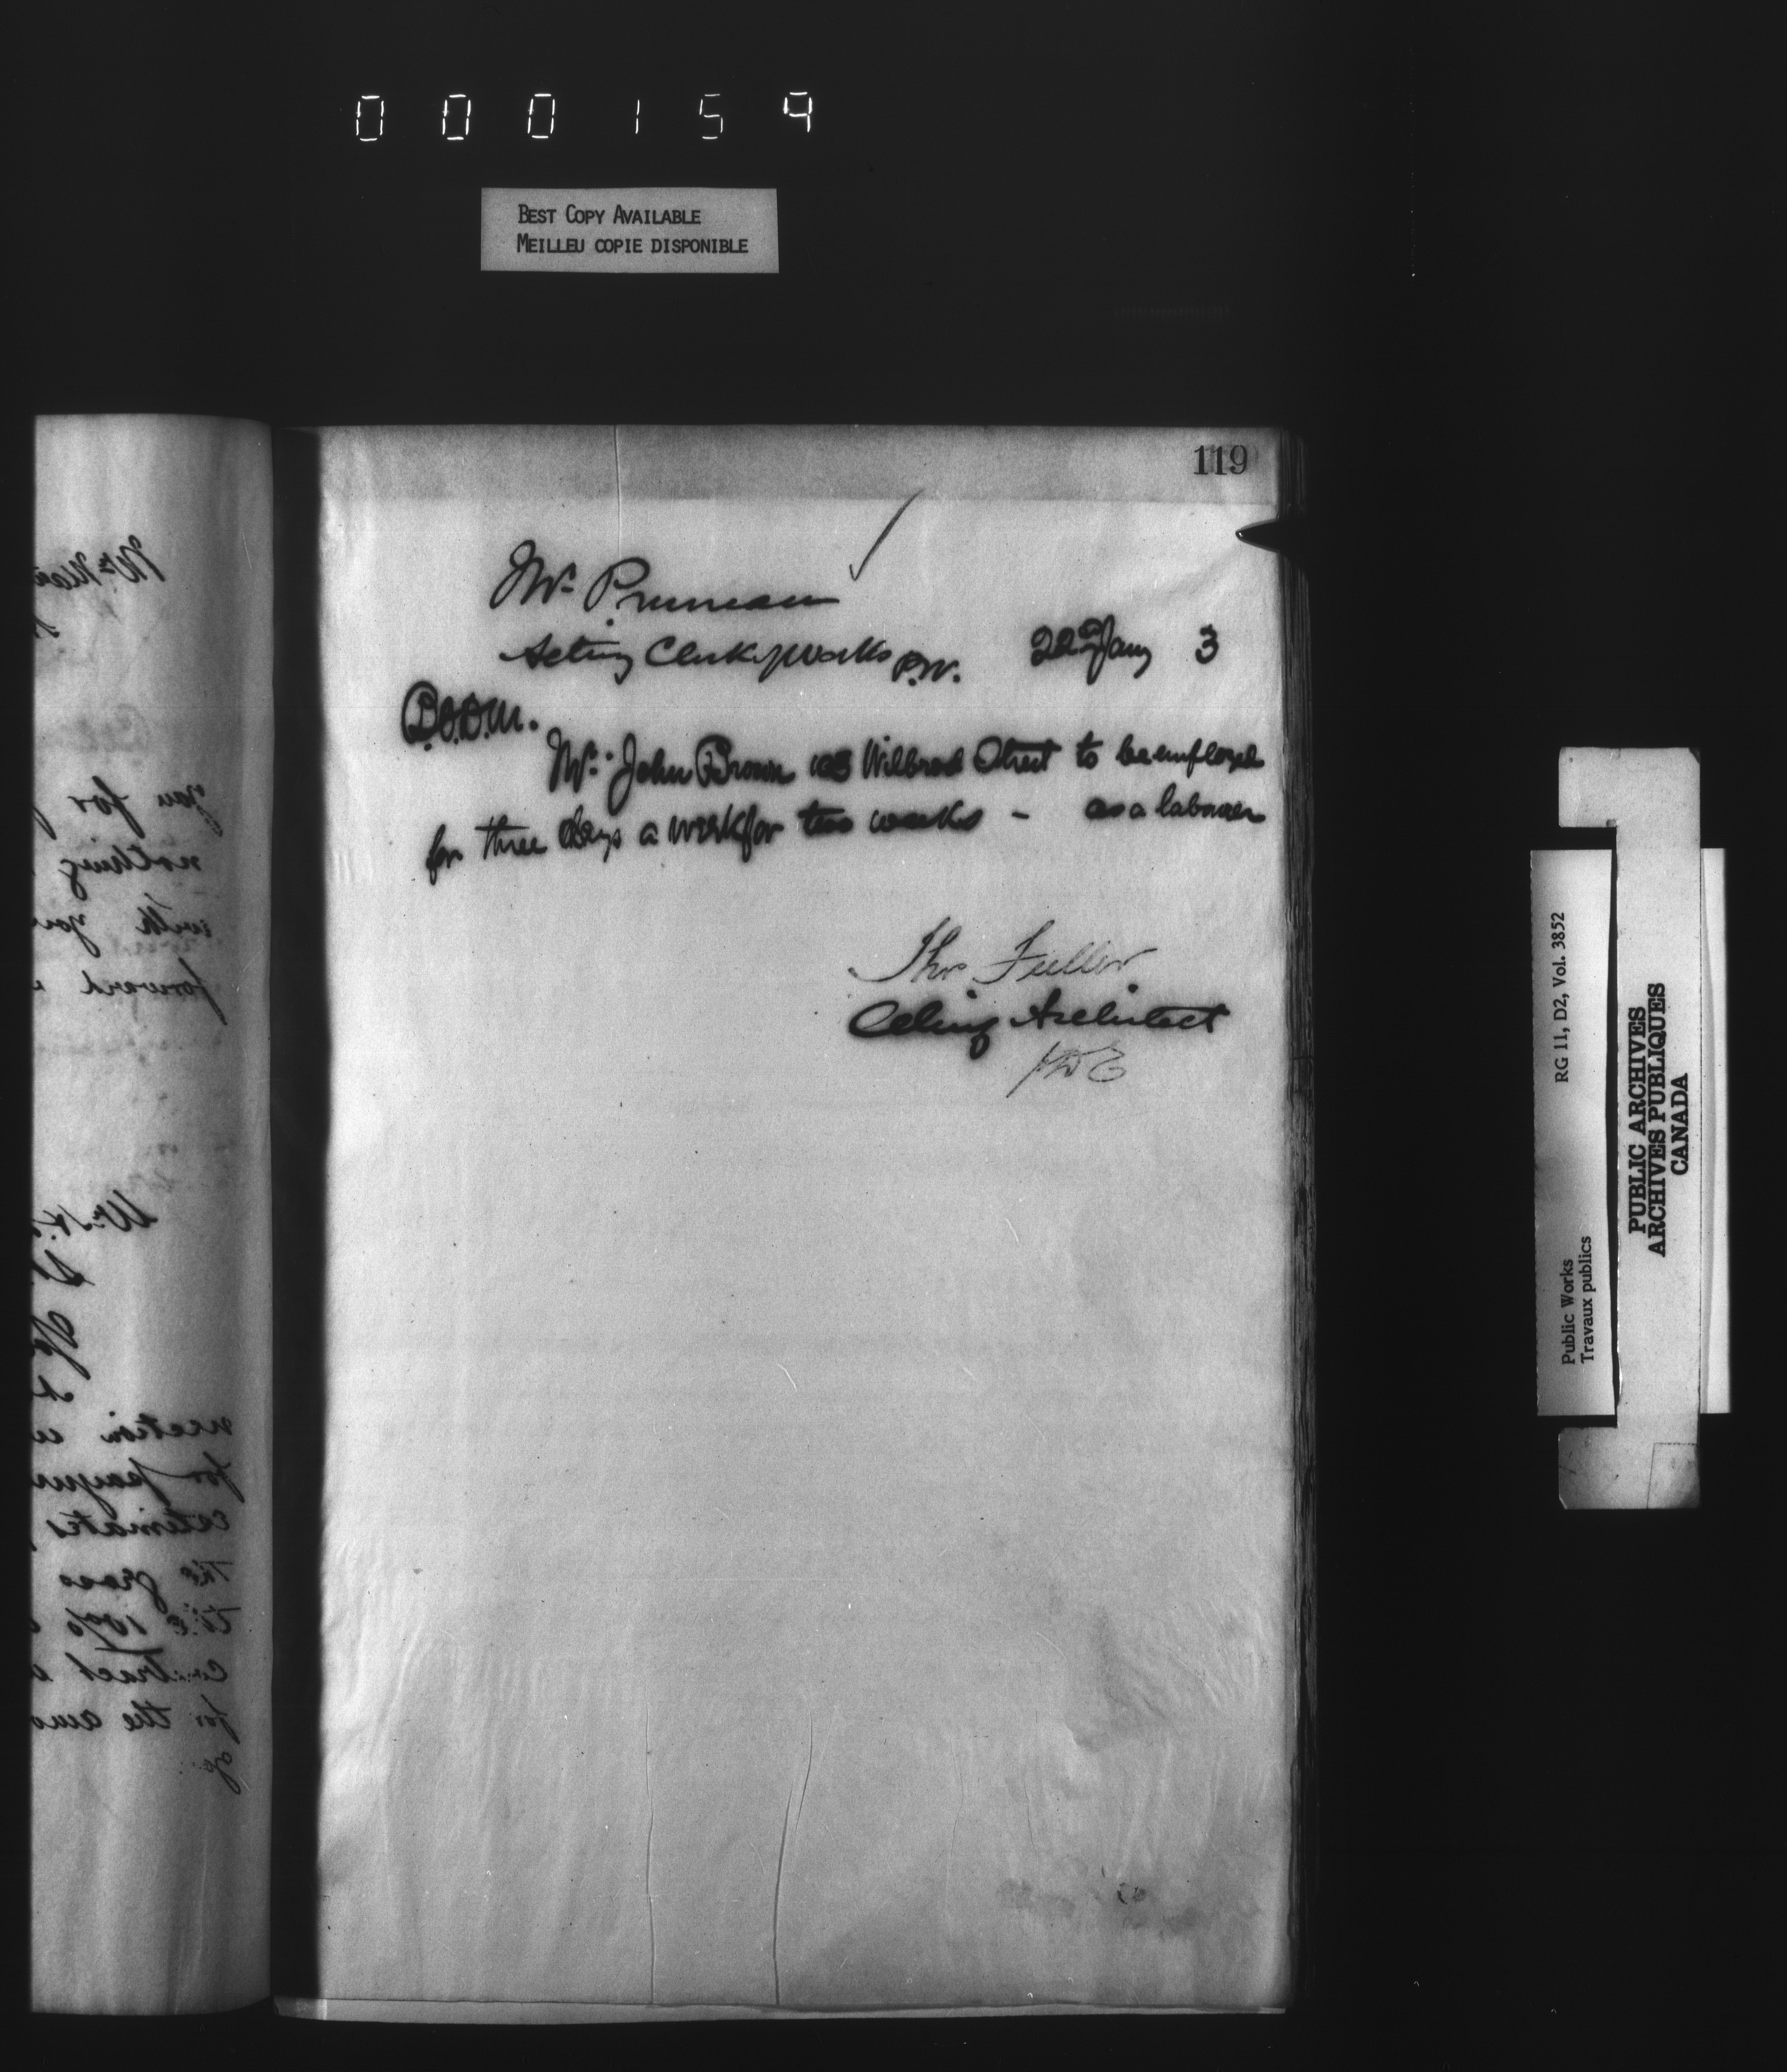 000159
BEST COPY AVAILABLE
MEILLEU COPIE DISPONIBLE
119
Mr Pruneau
Acting Clerk of Works P.W. 22nd Jany 3
Mr. John Brown Wilbrod Street to be employed
for three days a week for two weeks - as a labourer
Thos Fuller
Acting Architect
RG 11, D2, Vol. 3852
Public Works
Travaux publics
PUBLIC ARCHIVES
ARCHIVES PUBLIQUES
CANADA
you for
nothing
with you
forward
nection
for paym
estimates
the gross
the 10%
contract
for the amo
of